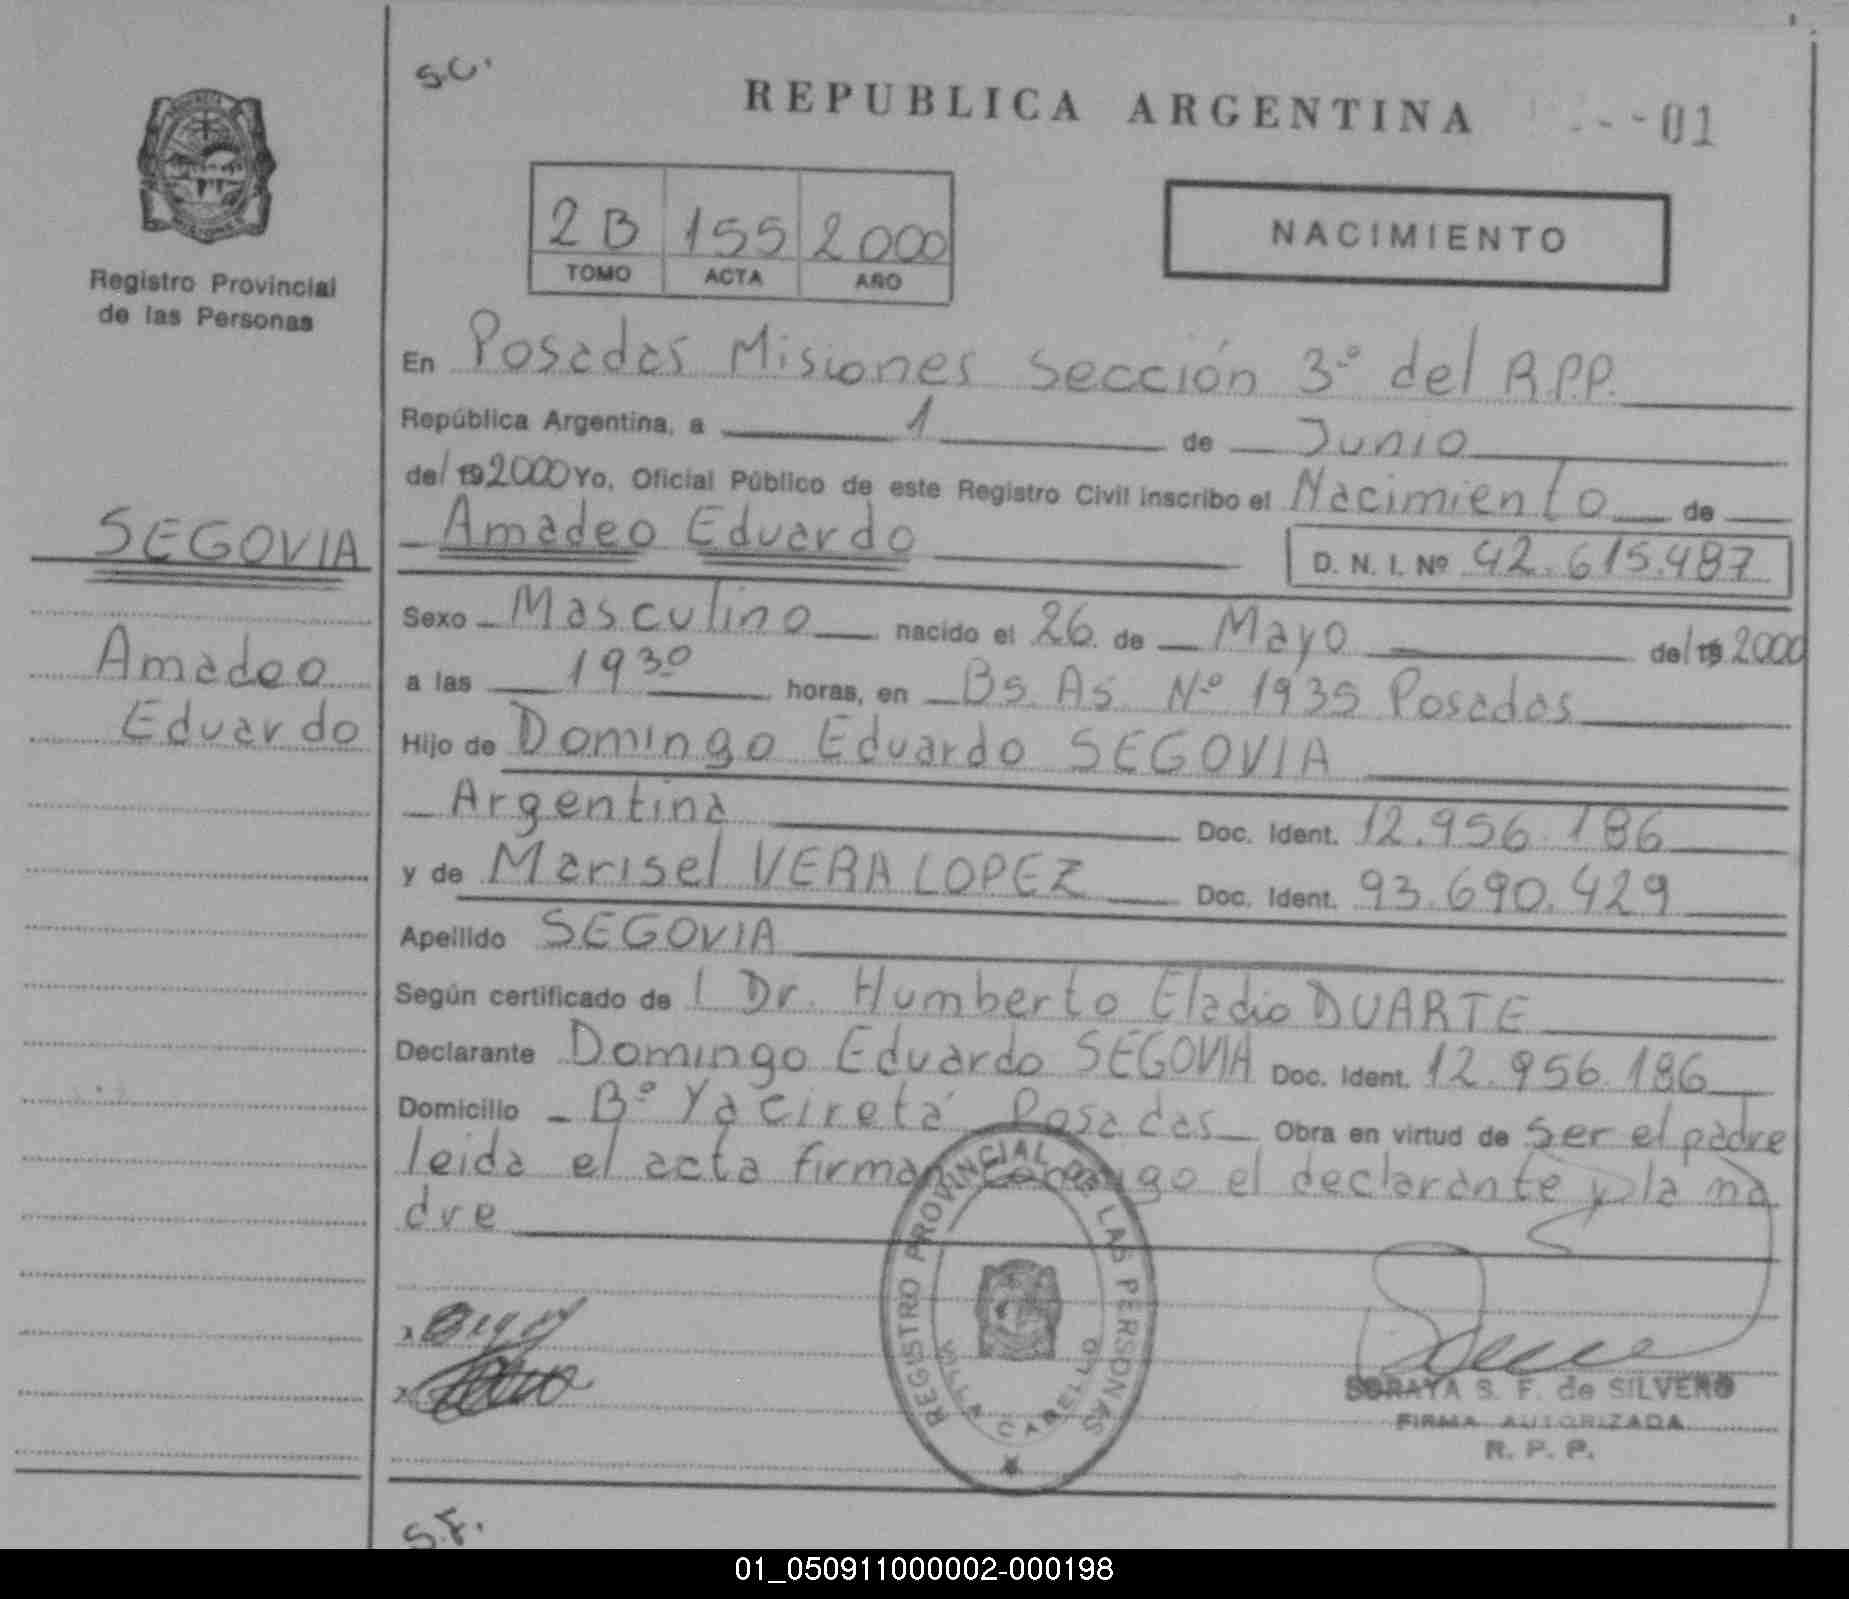 S.C.
REPUBLICA ARGENTINA
---01
2B 155 2000
TOMO ACTA AÑO
NACIMIENTO
Registro Provincial
de las Personas
SEGOVIA
Amadeo
Eduardo
En Posadas Misiones Sección 3º del R.P.P.
República Argentina, a 1 de Junio
del 19 2000 Yo, Oficial Público de este Registro Civil inscribo el Nacimiento de
Amadeo Eduardo D. N. I. Nº 42.615.487
Sexo Masculino nacido el 26 de Mayo del 19 2000
a las 19 30 horas, en Bs. As. Nº 1935 Posadas
Hijo de Domingo Eduardo SEGOVIA
Argentina Doc. Ident. 12.956.186
y de Marisel VERA LOPEZ Doc. Ident. 93.690.429
Apellido SEGOVIA
Según certificado de l Dr. Humberto Eladio DUARTE
Declarante Domingo Eduardo SEGOVIA Doc. Ident. 12.956.186
Domicilio Bº Yacireta Posadas Obra en virtud de Ser el padre
leida el acta firman conmigo el declarante y la ma
dre
REGISTRO PROVINCIAL DE LAS PERSONAS
VILLA CABELLO
SORAYA S. F. de SILVERO
FIRMA AUTORIZADA
R. P. P.
S.F.
01_050911000002-000198